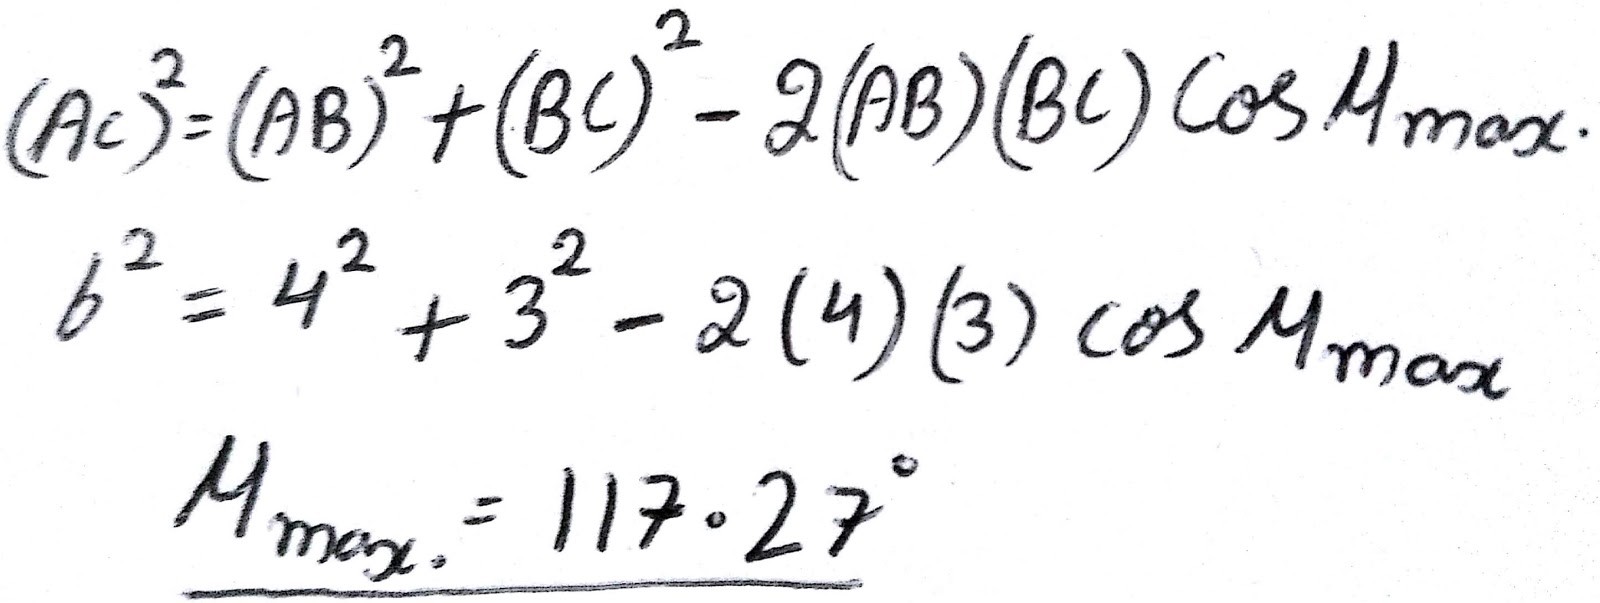 (AC)²=(AB)²+(BC)²-2(AB)(BC) Cos μmax.
6² = 4² + 3² - 2(4)(3) cos μmax
μmax. = 117.27°